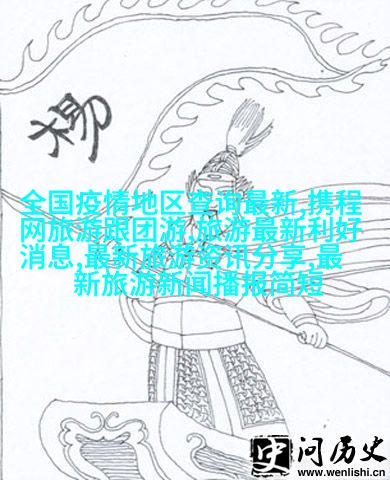 楊
全国疫情地区查询最新,携程
网旅游跟团游,旅游最新利好
消息,最新旅游资讯分享,最
新旅游新闻播报简短
史问历史
www.wenlishi.cn